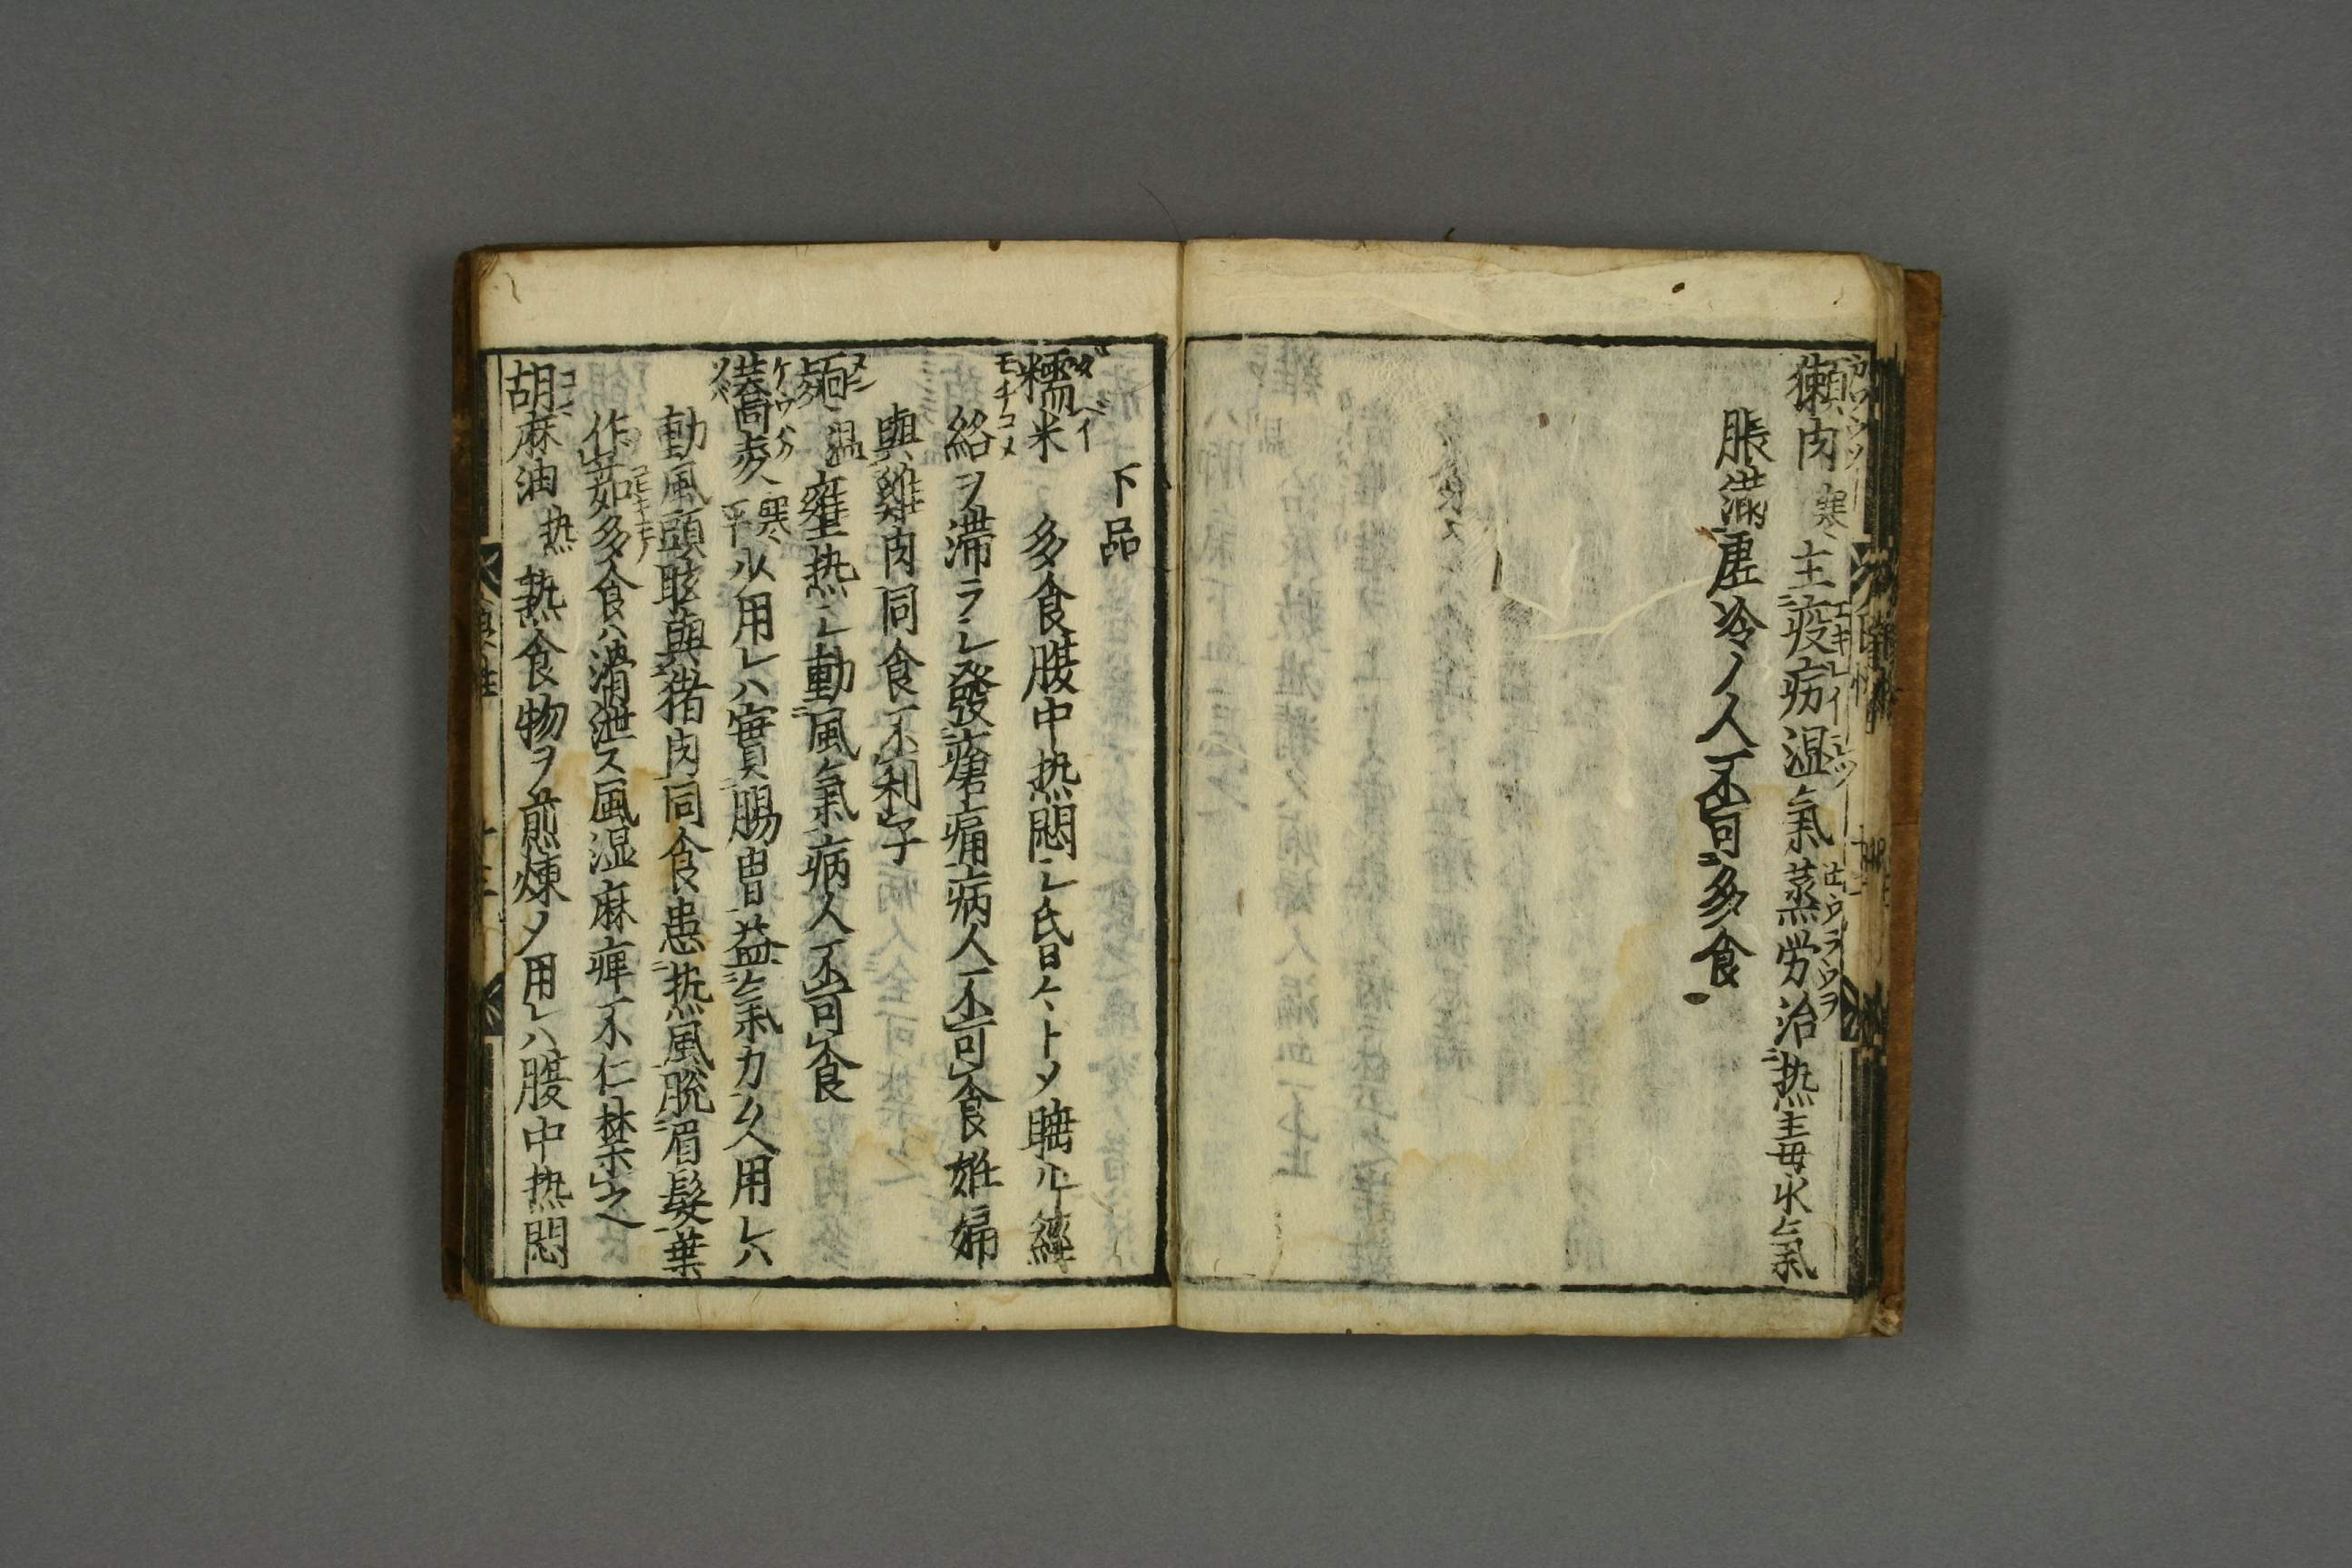 獺肉 寒 主疫疠湿氣蒸労治熱毒水氣
脹満虚冷ノ人不可多食
下品
糯米 多食腹中熱悶シ昏々トメ睡ル経
絡ヲ滞ラシ發瘡痛病人不可食姙婦
與雞肉同食不利子
麺 温 壅熱シ動風氣病人不可食
蕎麦 寒 平 以用レハ實腸胃益氣力久用レハ
動風頭眩與猪肉同食患热風脱眉髪葉
作茹多食ハ滑泄ス風湿麻痺不仁禁之
胡麻油 热 熱食物ヲ煎煉メ用レハ腹中热悶